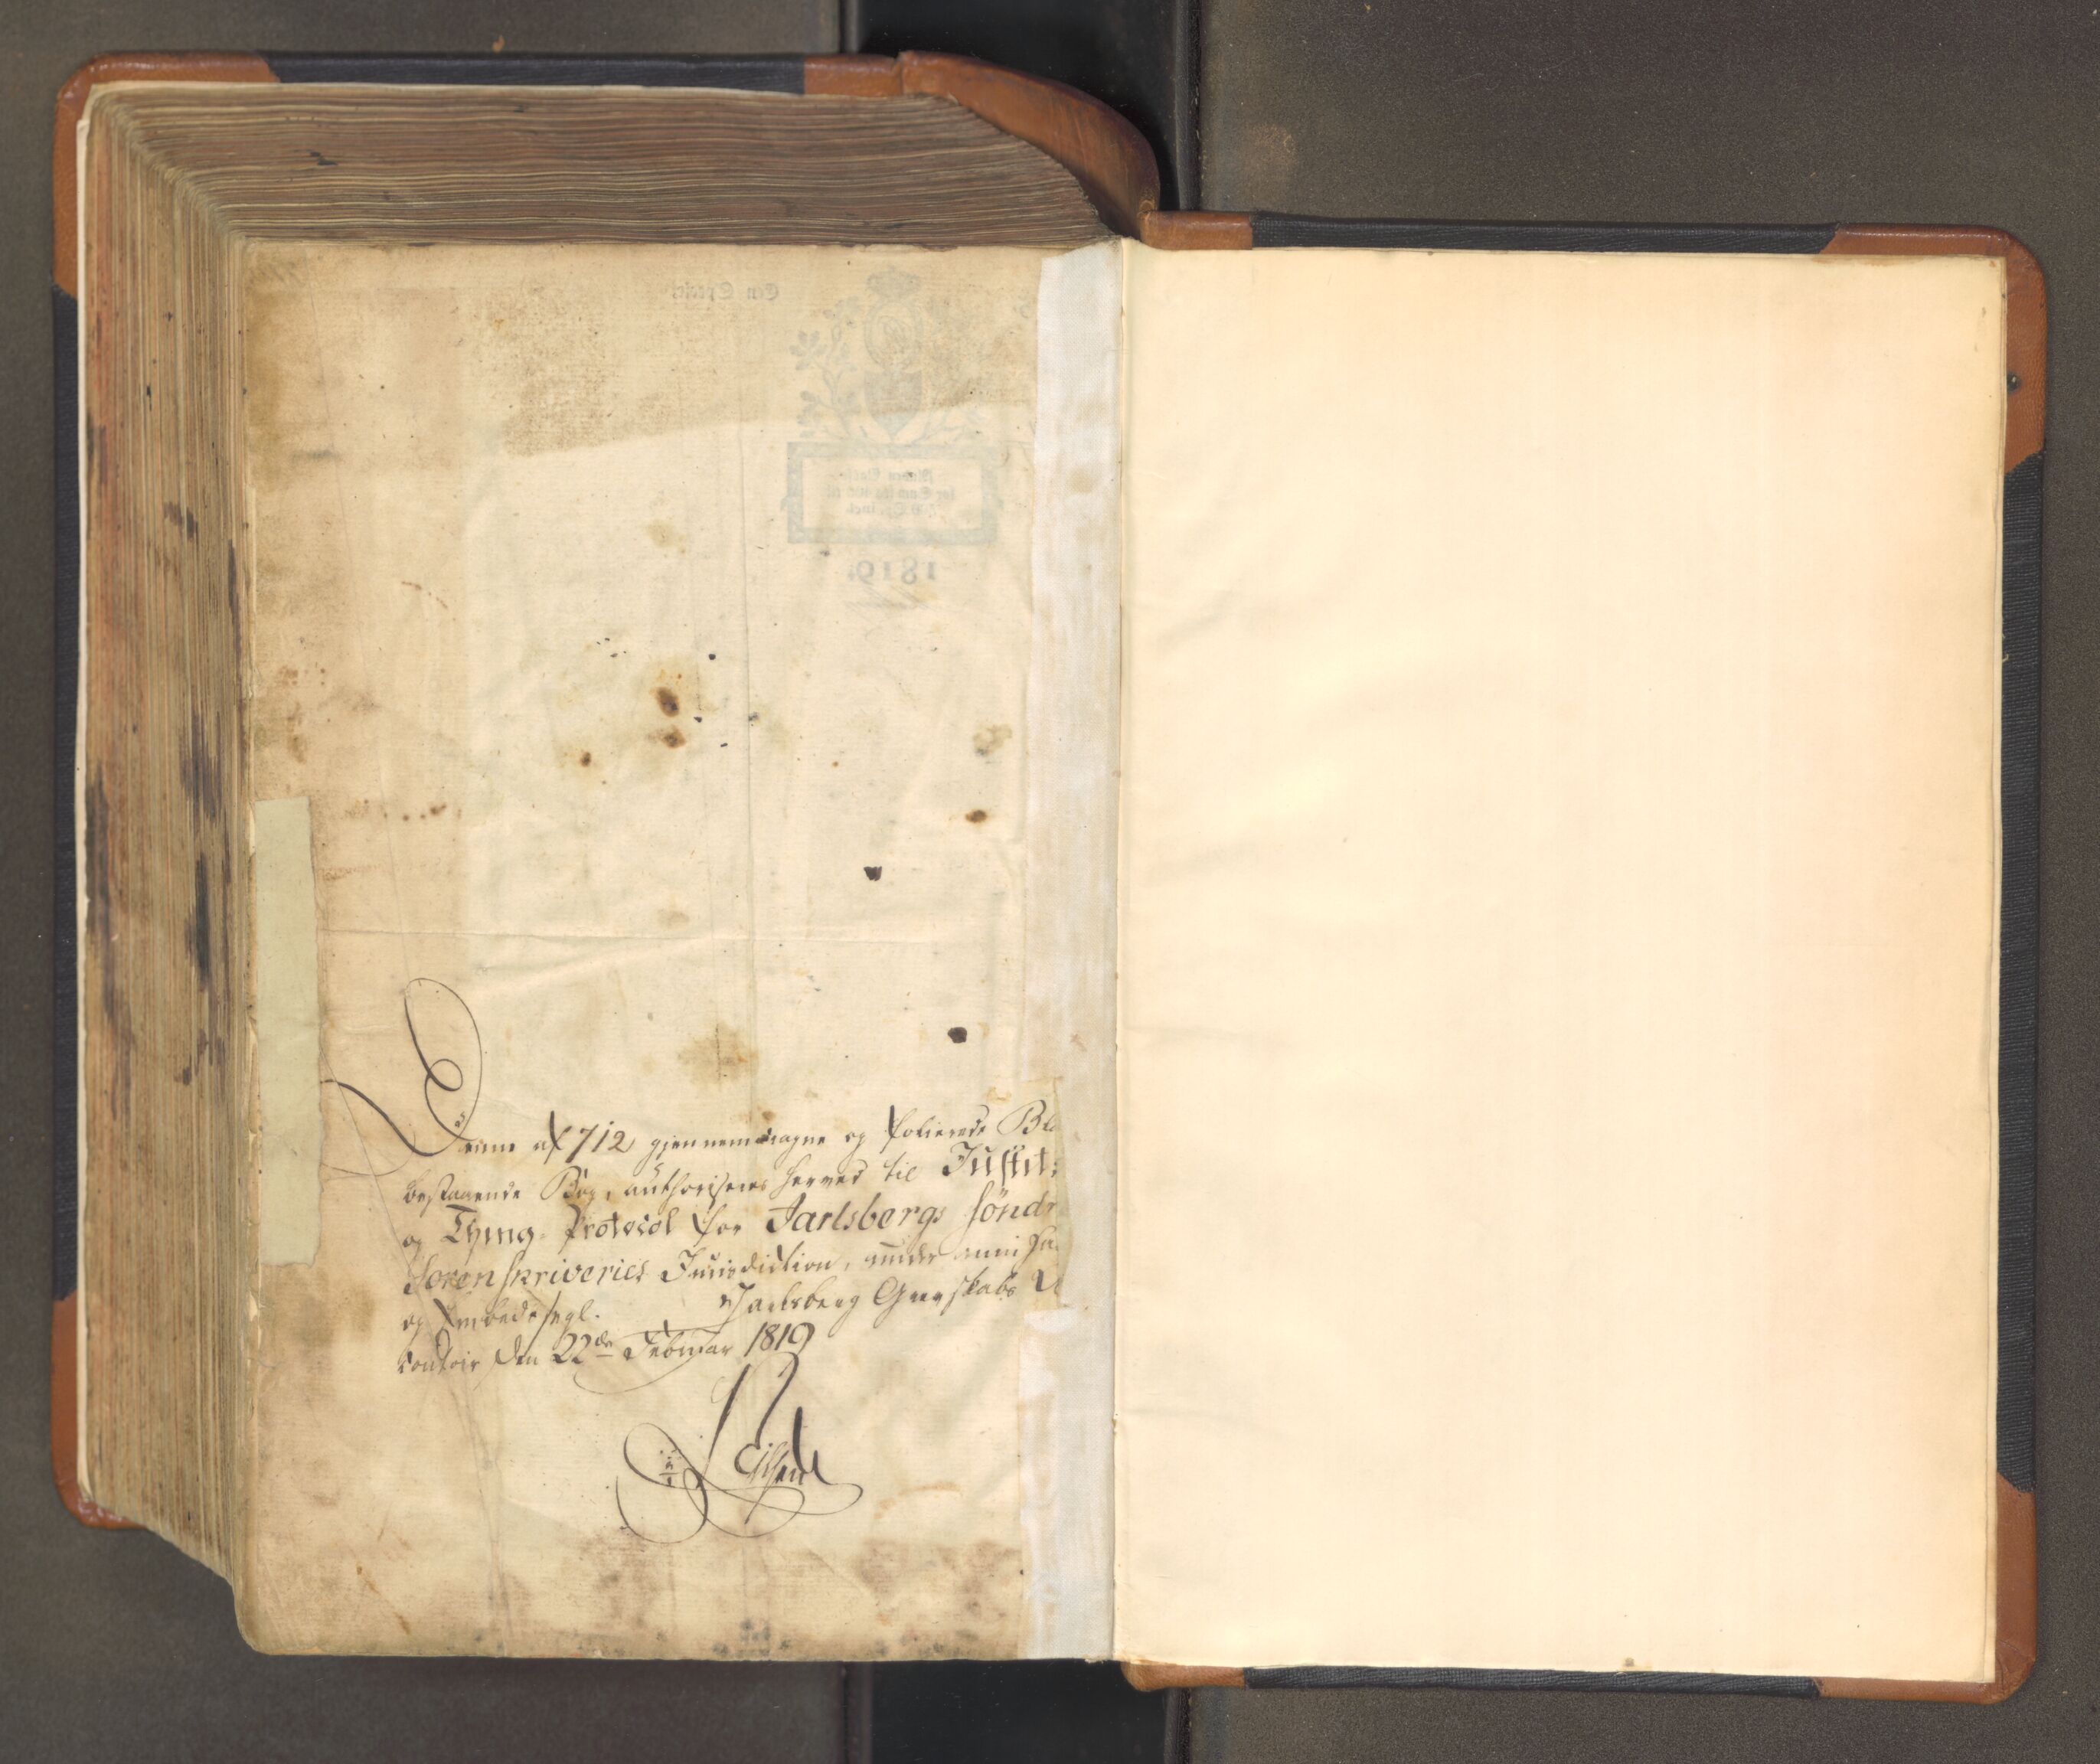 Denne af 712 gjennemdragne og folierede Bla
bestaaende Bog, authoriseres herved til Justits
og Thing-Protocol for Jarlsbergs söndr
Sorenskriveries Jurisdiction, under min Ha
og Embedssegl.
Jarlsberg Grevskabs
Contoir den 22de Februar 1819
1819.